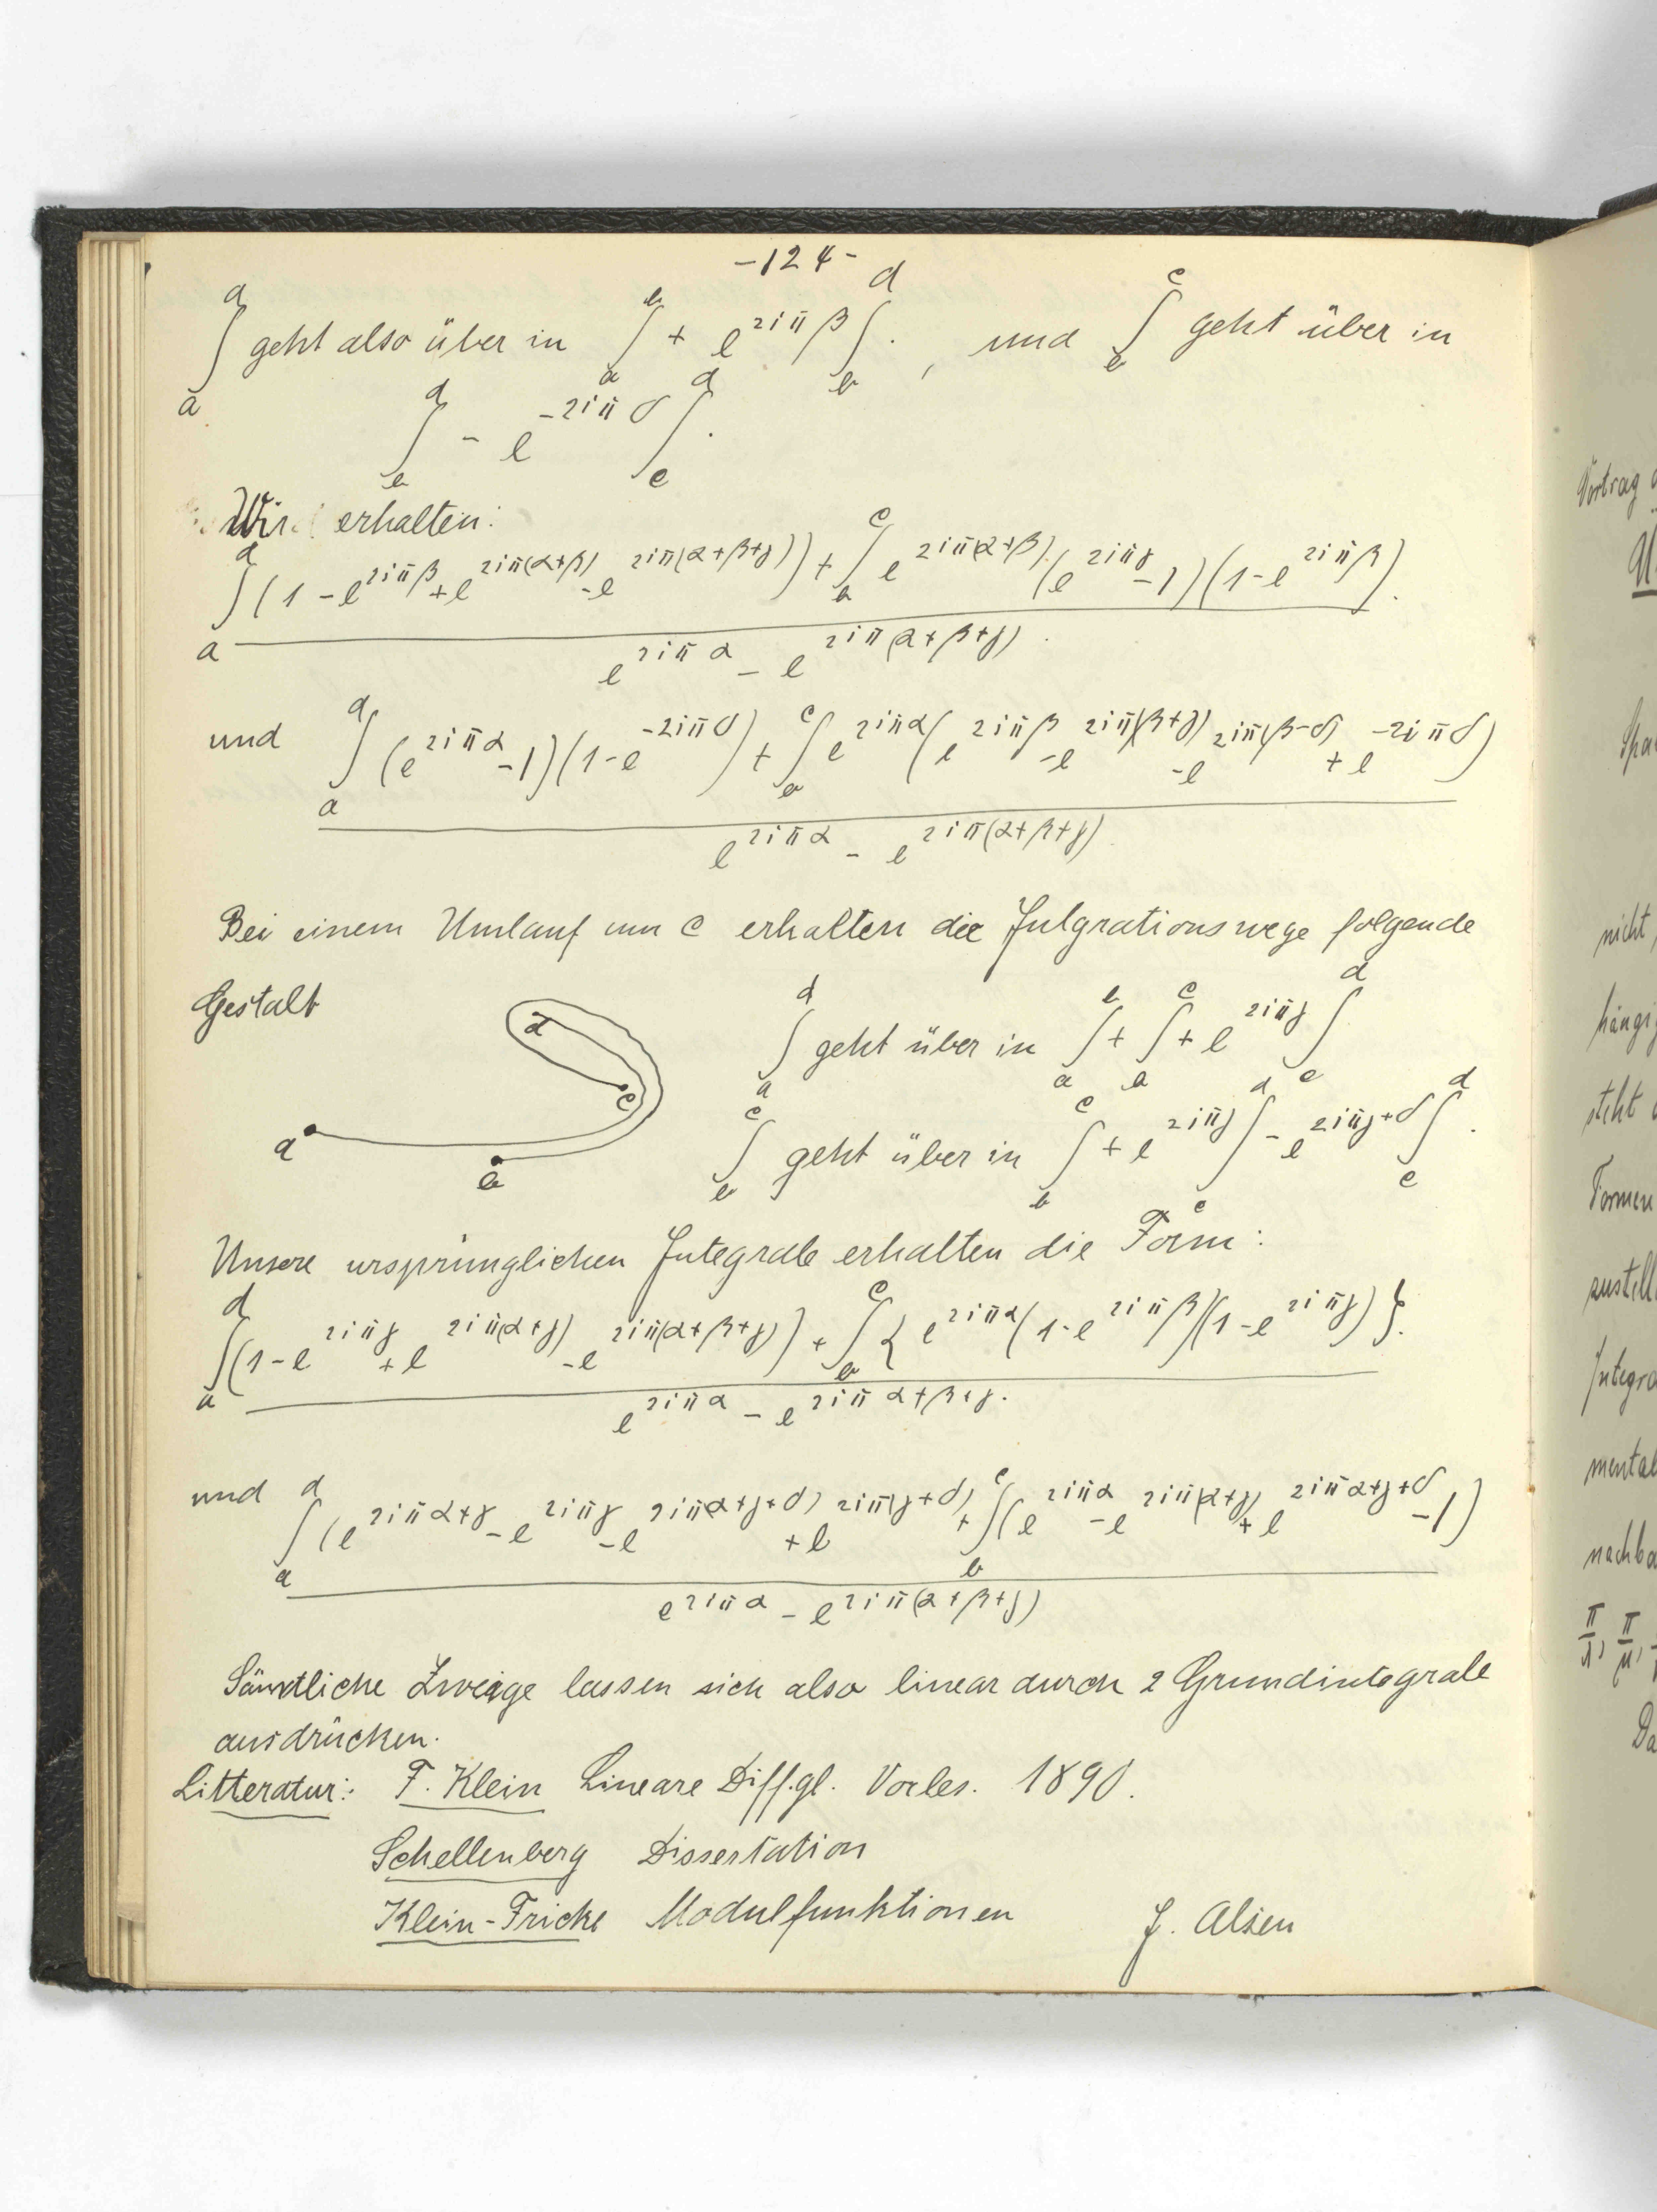 -124-
∫_a^d geht also über in ∫_a^b + e^{2iπβ} ∫_b^d . , und ∫_b^c geht über in
∫_b^d - e^{-2iπδ} ∫_c^d .
Wir erhalten:
∫_a^d (1 - e^{2iπβ} + e^{2iπ(α+β)} - e^{2iπ(α+β+γ)}) + ∫_b^c e^{2iπ(α+β)} (e^{2iπγ} - 1)(1 - e^{2iπβ}).
e^{2iπα} - e^{2iπ(α+β+γ)}.
und ∫_a^d (e^{2iπα} - 1)(1 - e^{-2iπδ}) + ∫_b^c e^{2iπα} (e^{2iπβ} - e^{2iπ(β+γ)} - e^{2iπ(β-δ)} + e^{-2iπδ})
e^{2iπα} - e^{2iπ(α+β+γ)}
Bei einem Umlauf um c erhalten die Julgrationswege folgende
Gestalt
d
c
a
b
∫_a^d geht über in ∫_a^b + ∫_b^c + e^{2iπγ} ∫_c^d
∫_b^c geht über in ∫_b^c + e^{2iπγ} ∫_c^d - e^{2iπγ+δ} ∫_c^d .
Unsere ursprünglichen Integrale erhalten die Form:
∫_a^d (1 - e^{2iπγ} + e^{2iπ(α+γ)} - e^{2iπ(α+β+γ)}) + ∫_b^c { e^{2iπα} (1 - e^{2iπβ})(1 - e^{2iπγ}) }.
e^{2iπα} - e^{2iπα+β+γ}.
und ∫_a^d (e^{2iπα+γ} - e^{2iπγ} - e^{2iπ(α+γ+δ)} + e^{2iπ(γ+δ)} + ∫_b^c (e^{2iπα} - e^{2iπ(α+γ)} + e^{2iπα+γ+δ} - 1)
e^{2iπα} - e^{2iπ(α+β+γ)}
Sämtliche Zweige lassen sich also linear durch 2 Grundintegrale
ausdrücken.
Litteratur: F. Klein Lineare Diff.gl. Vorles. 1890.
Schellenberg Dissertation
Klein-Fricke Modulfunktionen
J. Alsen
Vortrag
nicht,
hängig
steht
Formen
zustell
Integra
mental
nachba
π/λ, π/μ,
Da